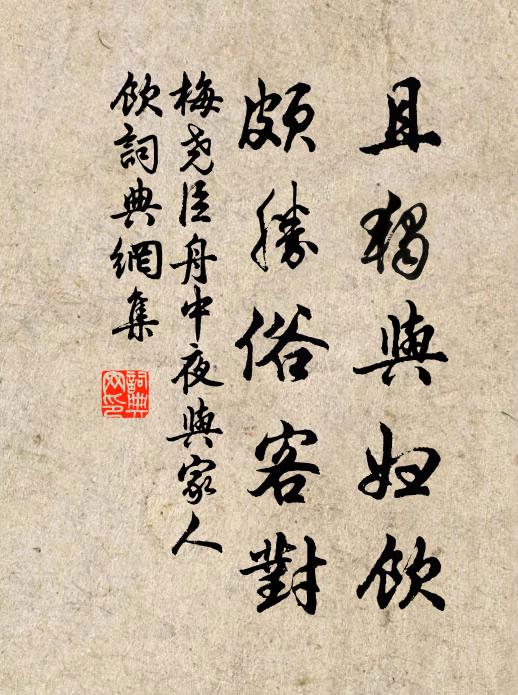 且獨與妇飲
頗勝俗客對
梅堯臣舟中夜與家人
飲詞典網集
詞典
网印